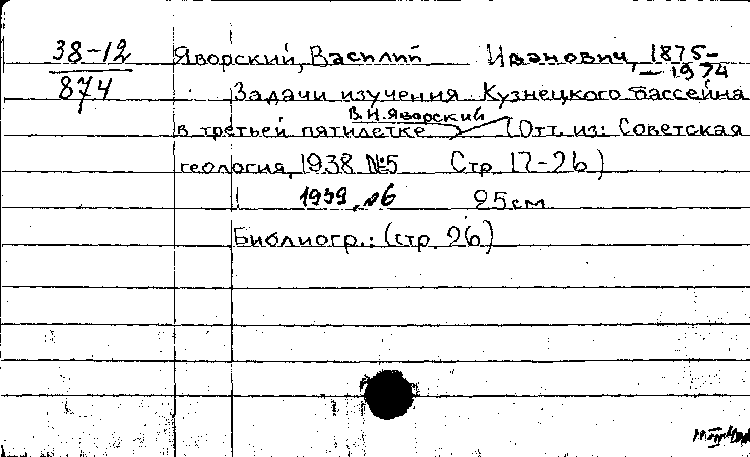 38-12
874
Яворский, Василий Иванович, 1875-
-1974
Задачи изучения Кузнецкого бассейна
В.И.Яворский
в третьей пятилетке (Отт. из: Советская
геология, 1938 №5 Стр. 17-26)
1939, №6 25см
Библиогр.: (стр. 26)